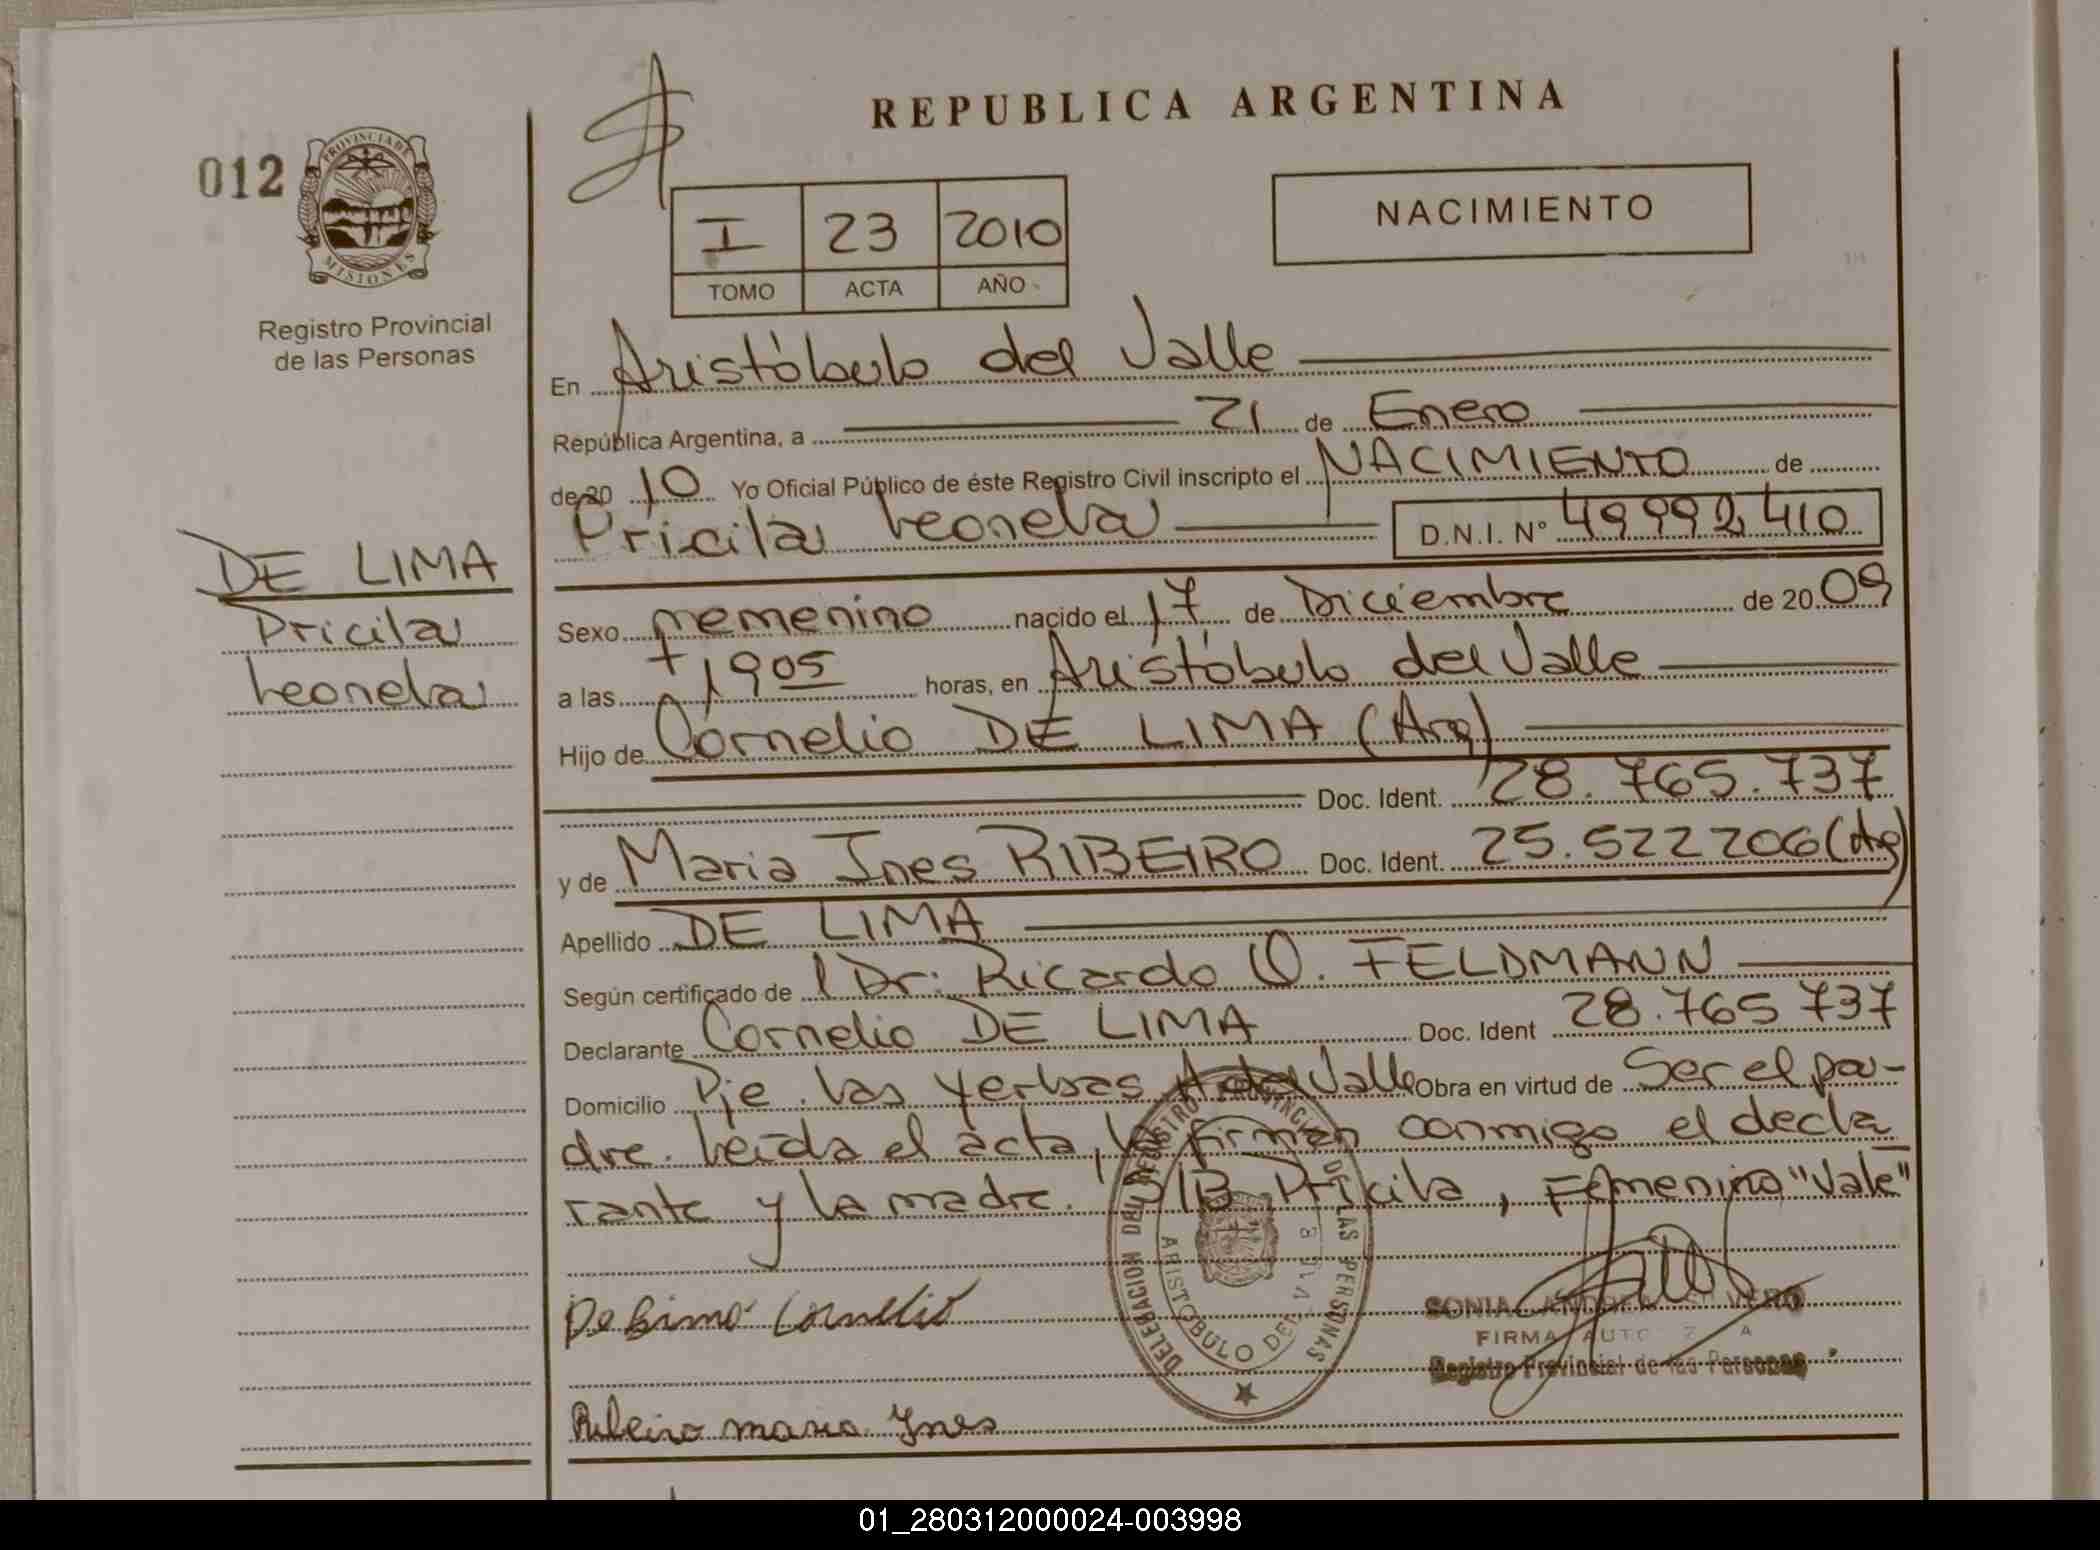 REPUBLICA ARGENTINA
012
PROVINCIA DE
MISIONES
Registro Provincial
de las Personas
I 23 2010
TOMO ACTA AÑO
NACIMIENTO
En Aristóbulo del Valle
República Argentina, a 21 de Enero
de 20 10 Yo Oficial Público de éste Registro Civil inscripto el NACIMIENTO de
Pricila Leonela D.N.I. Nº 49992410
DE LIMA
Pricila
Leonela
Sexo Femenino nacido el 17 de Diciembre de 20 09
a las 1905 horas, en Aristóbulo del Valle
Hijo de Cornelio DE LIMA (Arg)
Doc. Ident. 28.765.737
y de Maria Ines RIBEIRO Doc. Ident. 25.522206 (Arg)
Apellido DE LIMA
Según certificado de l Dr. Ricardo O. FELDMANN
Declarante Cornelio DE LIMA Doc. Ident 28.765 737
Domicilio Pje. Las Yerbas A del Valle Obra en virtud de Ser el pa-
dre. Leída el acta, la firman conmigo el decla
rante y la madre. S/B Pricila, Femenino "Vale"
DELEGACION DEL REGISTRO PROVINCIAL DE LAS PERSONAS
ARISTOBULO DEL VALLE
De Lima Cornelio
SONIA ANDREA SILVERO
FIRMA AUTORIZADA
Registro Provincial de las Personas
Ribeiro maria Ynes
01_280312000024-003998